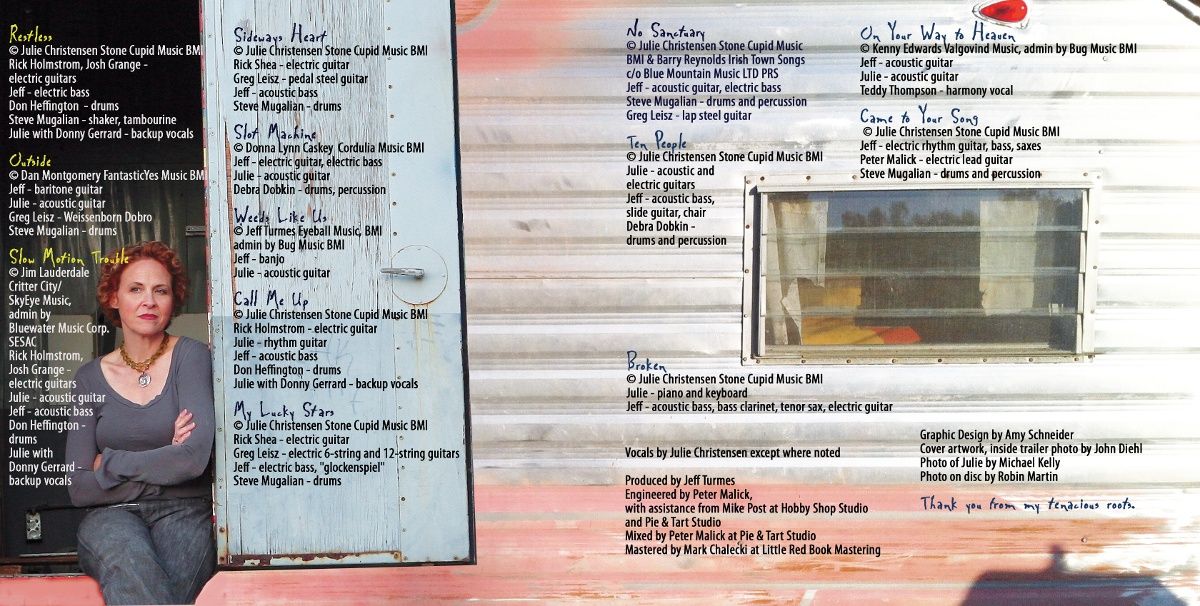 Restless
© Julie Christensen Stone Cupid Music BMI
Rick Holmstrom, Josh Grange -
electric guitars
Jeff - electric bass
Don Heffington - drums
Steve Mugalian - shaker, tambourine
Julie with Donny Gerrard - backup vocals
Outside
© Dan Montgomery FantasticYes Music BMI
Jeff - baritone guitar
Julie - acoustic guitar
Greg Leisz - Weissenborn Dobro
Steve Mugalian - drums
Slow Motion Trouble
© Jim Lauderdale
Critter City/
SkyEye Music,
admin by
Bluewater Music Corp.
SESAC
Rick Holmstrom,
Josh Grange -
electric guitars
Julie - acoustic guitar
Jeff - acoustic bass
Don Heffington -
drums
Julie with
Donny Gerrard -
backup vocals
Sideways Heart
© Julie Christensen Stone Cupid Music BMI
Rick Shea - electric guitar
Greg Leisz - pedal steel guitar
Jeff - acoustic bass
Steve Mugalian - drums
Slot Machine
© Donna Lynn Caskey Cordulia Music BMI
Jeff - electric guitar, electric bass
Julie - acoustic guitar
Debra Dobkin - drums, percussion
Weeds Like Us
© Jeff Turmes Eyeball Music, BMI
admin by Bug Music BMI
Jeff - banjo
Julie - acoustic guitar
Call Me Up
© Julie Christensen Stone Cupid Music BMI
Rick Holmstrom - electric guitar
Julie - rhythm guitar
Jeff - acoustic bass
Don Heffington - drums
Julie with Donny Gerrard - backup vocals
My Lucky Stars
© Julie Christensen Stone Cupid Music BMI
Rick Shea - electric guitar
Greg Leisz - electric 6-string and 12-string guitars
Jeff - electric bass, "glockenspiel"
Steve Mugalian - drums
No Sanctuary
© Julie Christensen Stone Cupid Music
BMI & Barry Reynolds Irish Town Songs
c/o Blue Mountain Music LTD PRS
Jeff - acoustic guitar, electric bass
Steve Mugalian - drums and percussion
Greg Leisz - lap steel guitar
Ten People
© Julie Christensen Stone Cupid Music BMI
Julie - acoustic and
electric guitars
Jeff - acoustic bass,
slide guitar, chair
Debra Dobkin -
drums and percussion
Broken
© Julie Christensen Stone Cupid Music BMI
Julie - piano and keyboard
Jeff - acoustic bass, bass clarinet, tenor sax, electric guitar
Vocals by Julie Christensen except where noted
Produced by Jeff Turmes
Engineered by Peter Malick,
with assistance from Mike Post at Hobby Shop Studio
and Pie & Tart Studio
Mixed by Peter Malick at Pie & Tart Studio
Mastered by Mark Chalecki at Little Red Book Mastering
On Your Way to Heaven
© Kenny Edwards Valgovind Music, admin by Bug Music BMI
Jeff - acoustic guitar
Julie - acoustic guitar
Teddy Thompson - harmony vocal
Came to Your Song
© Julie Christensen Stone Cupid Music BMI
Jeff - electric rhythm guitar, bass, saxes
Peter Malick - electric lead guitar
Steve Mugalian - drums and percussion
Graphic Design by Amy Schneider
Cover artwork, inside trailer photo by John Diehl
Photo of Julie by Michael Kelly
Photo on disc by Robin Martin
Thank you from my tenacious roots.